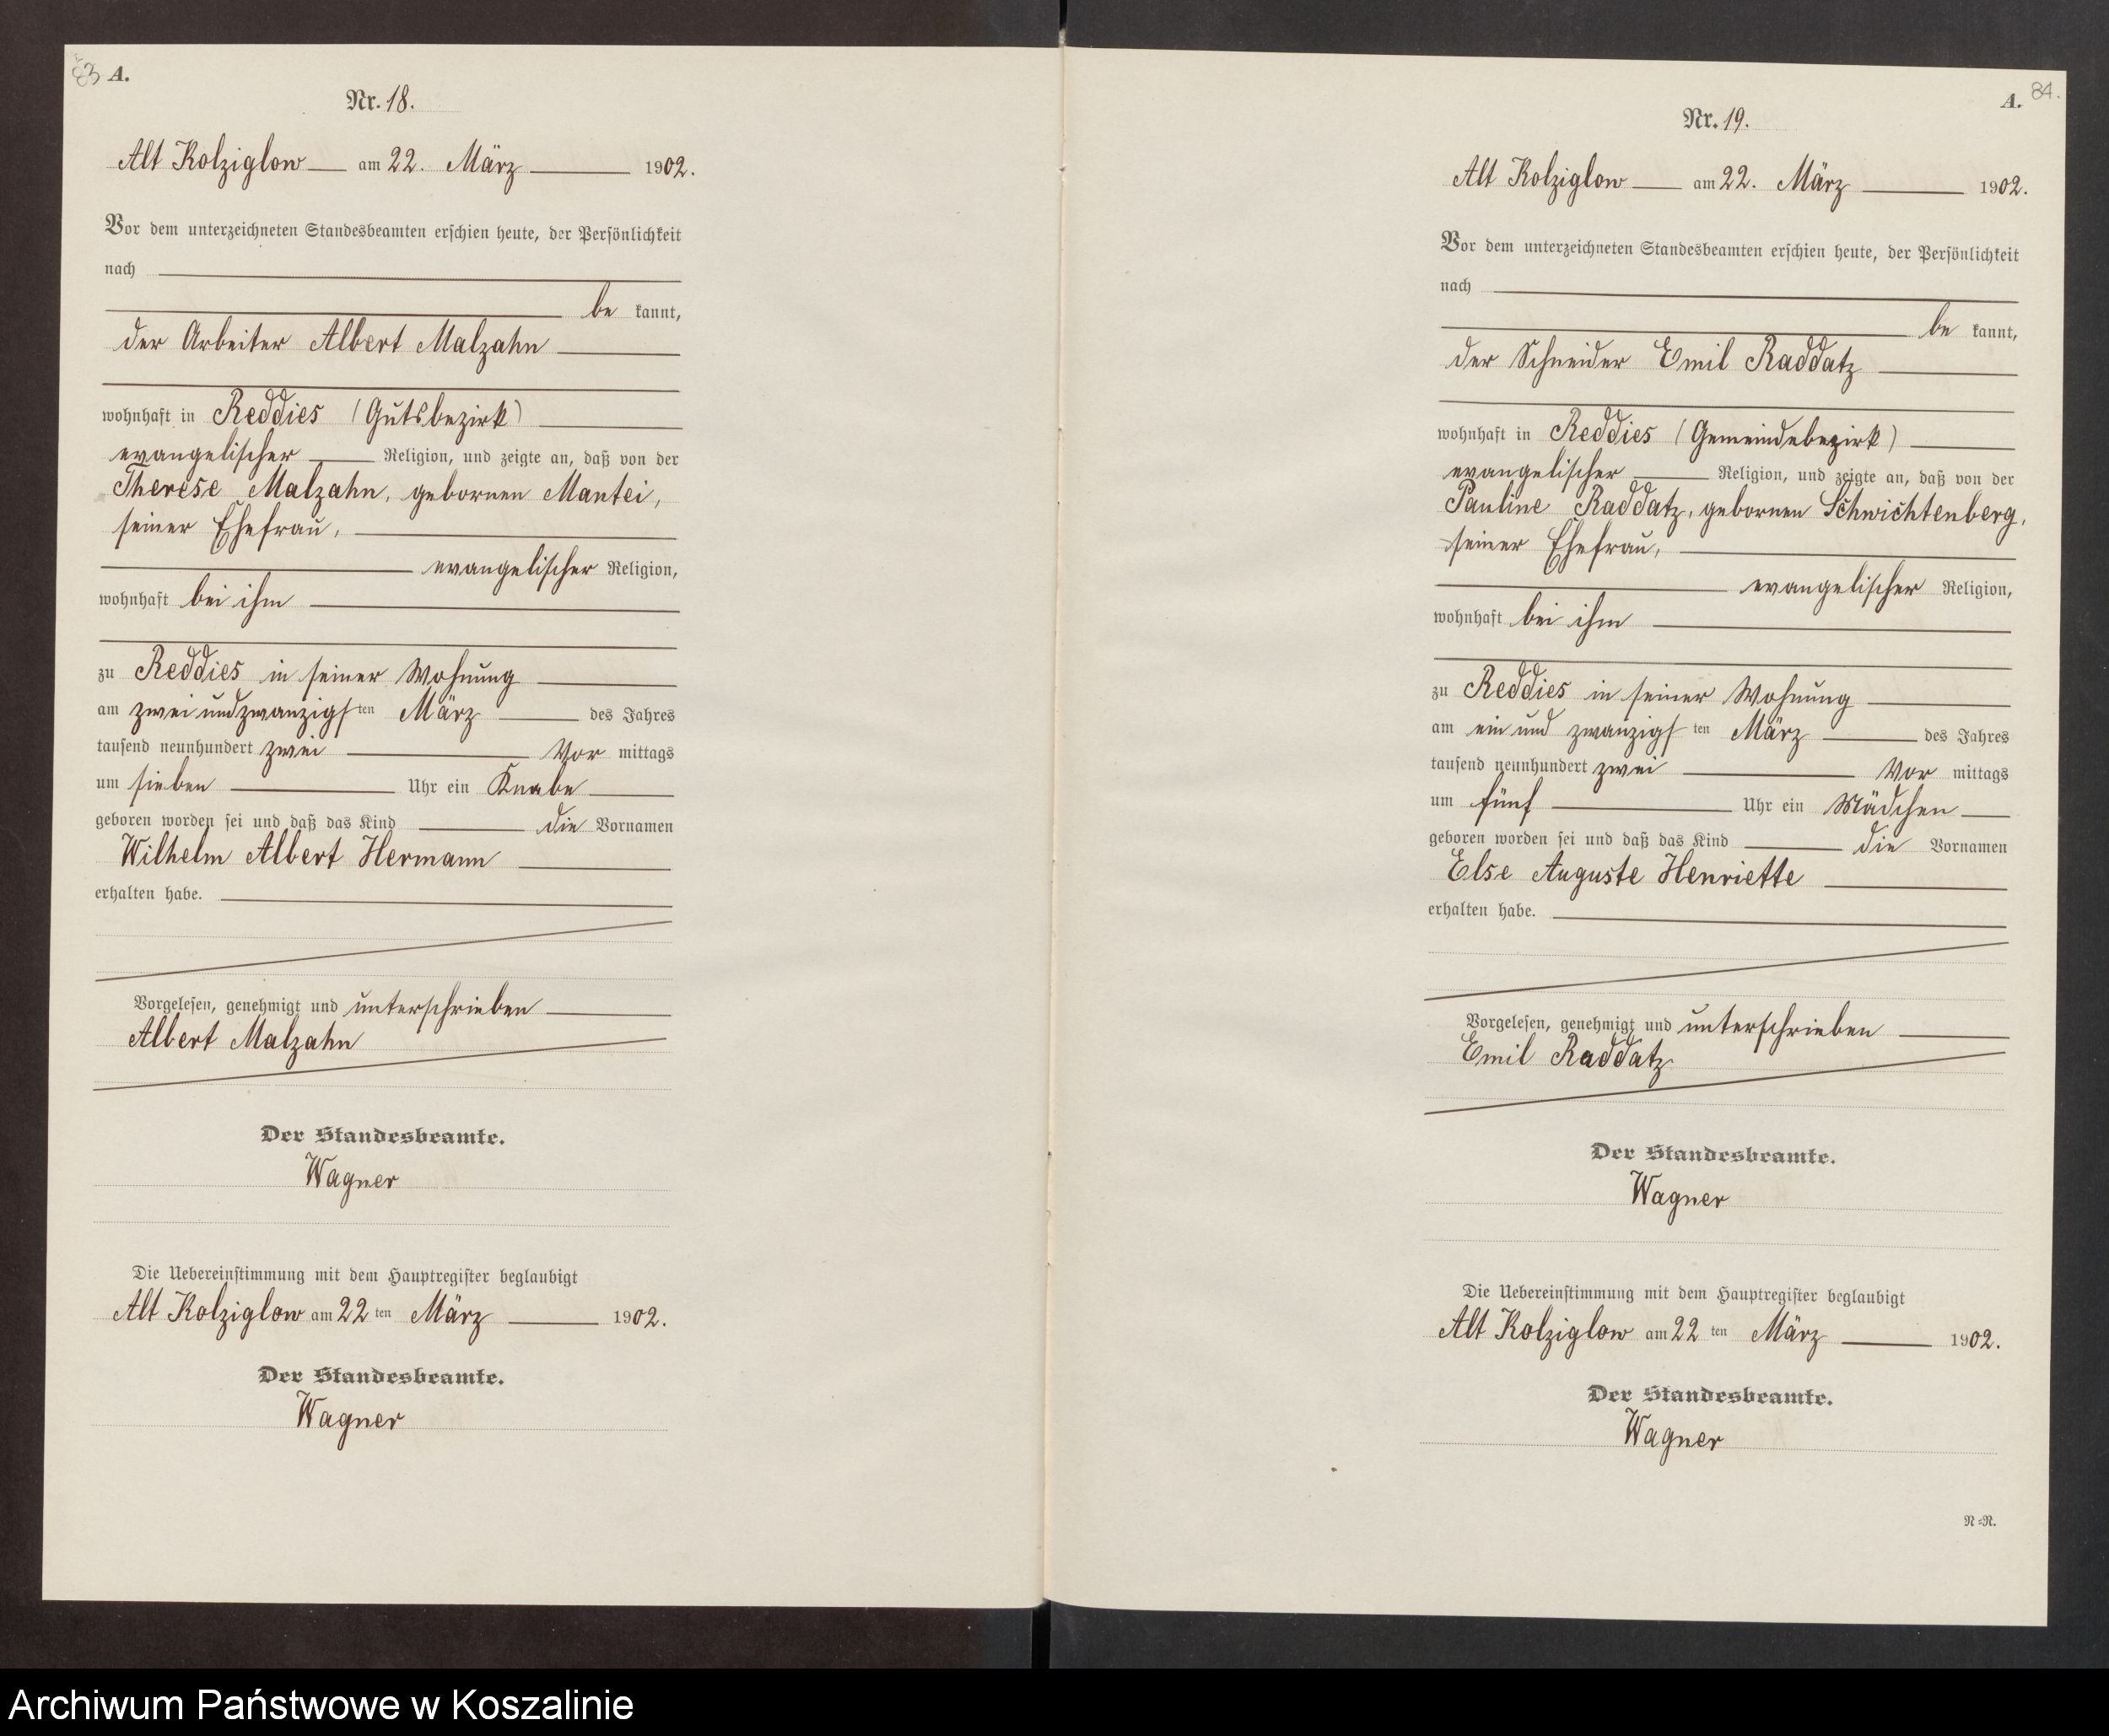 83 A.
Nr. 18.
Alt Kolziglow am 22. März 1902.
Vor dem unterzeichneten Standesbeamten erschien heute, der Persönlichkeit
nach
be kannt,
der Arbeiter Albert Malzahn
wohnhaft in Reddies (Gutsbezirk)
evangelischer Religion, und zeigte an, daß von der
Therese Malzahn, gebornen Mantei,
seiner Ehefrau,
evangelischer Religion,
wohnhaft bei ihm
zu Reddies in seiner Wohnung
am zwei und zwanzigsten März des Jahres
tausend neunhundert zwei Vor mittags
um sieben Uhr ein Knabe
geboren worden sei und daß das Kind die Vornamen
Wilhelm Albert Hermann
erhalten habe.
Vorgelesen, genehmigt und unterschrieben
Albert Malzahn
Der Standesbeamte.
Wagner
Die Uebereinstimmung mit dem Hauptregister beglaubigt
Alt Kolziglow am 22 ten März 1902.
Der Standesbeamte.
Wagner
A. 84.
Nr. 19.
Alt Kolziglow am 22. März 1902.
Vor dem unterzeichneten Standesbeamten erschien heute, der Persönlichkeit
nach
be kannt,
der Schneider Emil Raddatz
wohnhaft in Reddies (Gemeindebezirk)
evangelischer Religion, und zeigte an, daß von der
Pauline Raddatz, gebornen Schwichtenberg,
seiner Ehefrau,
evangelischer Religion,
wohnhaft bei ihm
zu Reddies in seiner Wohnung
am ein und zwanzigsten März des Jahres
tausend neunhundert zwei Vor mittags
um fünf Uhr ein Mädchen
geboren worden sei und daß das Kind die Vornamen
Else Auguste Henriette
erhalten habe.
Vorgelesen, genehmigt und unterschrieben
Emil Raddatz
Der Standesbeamte.
Wagner
Die Uebereinstimmung mit dem Hauptregister beglaubigt
Alt Kolziglow am 22 ten März 1902.
Der Standesbeamte.
Wagner
N=N.
Archiwum Państwowe w Koszalinie